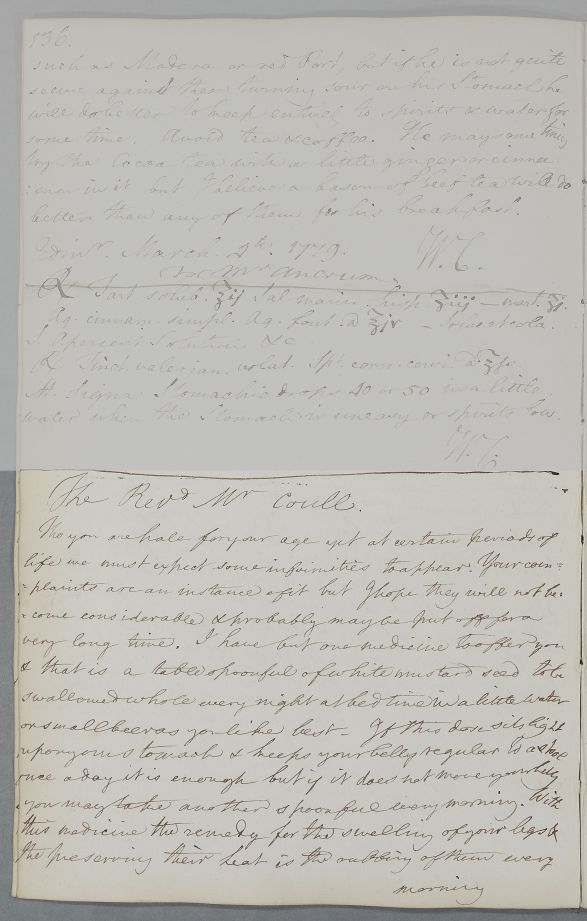 136.
such as Madera or red Port, but if he is not quite
secure against them turning sour on his Stomach he
will do better to keep entirely to spirits & water for
some time. Avoid tea & coffee. He may some times
try the Cocoa tea with a little ginger or cinna
:mon in it but I believe a bason of beef tea will do
better than any of them for his breakfast.
Edinr. March 4th. 1779. W.C.
For Mr Ancrum.
℞ Tart solub. ʒij Sal marin. hisp ʒiij
Aq. cinnam. simpl. Aq. font. a ʒiv
S. Aperient Solution &c
℞ Tinct. valerian. volat. Spt. corn. cervi. a ʒfs.
M. Signa. Stomachic drops 40 or 50 in a little
water when the Stomach is uneasy or spirits low.
W.C.
The Revd Mr Coull.
Tho you are hale for your age yet at certain periods of
life we must expect some infirmities to appear. Your com=
=plaints are an instance of it but I hope they will not be:
:come considerable & probably may be put off for a
very long time. I have but one medicine to offer you
& that is a table spoonful of white mustard seed to be
swallowed whole every night at bed time in a little water
or small beer as you like best - If this dose sits light
upon your stomach & keeps your belly regular to a stool
once a day it is enough but if it does not move your belly
you may take another spoonful every morning. With
this medicine the remedy for the swelling of your legs &
the preserving their heat is the rubbing of them every
morning